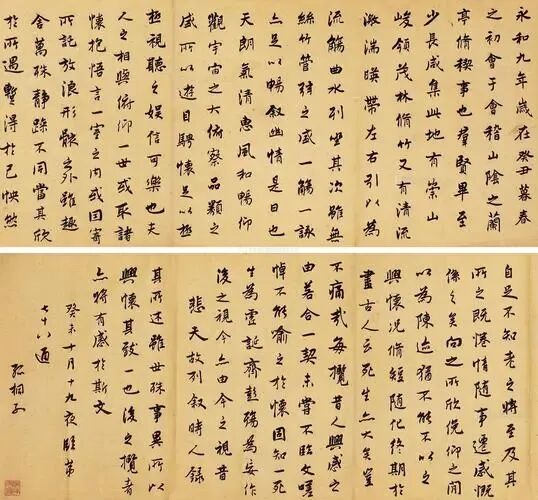 永和九年歲在癸丑暮春
之初會于會稽山陰之蘭
亭脩稧事也羣賢畢至
少長咸集此地有崇山
峻領茂林脩竹又有清流
激湍暎帶左右引以為
流觴曲水列坐其次雖無
絲竹管弦之盛一觴一詠
亦足以暢敘幽情是日也
天朗氣清惠風和暢仰
觀宇宙之大俯察品類之
盛所以遊目騁懷足以極
極視聽之娛信可樂也夫
人之相與俯仰一世或取諸
懷抱悟言一室之內或因寄
所託放浪形骸之外雖趣
舍萬殊靜躁不同當其欣
於所遇暫得於己怏然
自足不知老之將至及其
所之既惓情隨事遷感慨
係之矣向之所欣俛仰之間
以為陳迹猶不能不以之
興懷況脩短隨化終期於
盡古人云死生亦大矣豈
不痛哉每攬昔人興感之
由若合一契未嘗不臨文嗟
悼不能喻之於懷固知一死
生為虛誕齊彭殤為妄作
後之視今亦由今之視昔
悲夫故列敘時人錄
其所述雖世殊事異所以
興懷其致一也後之攬者
亦將有感於斯文
癸未十月十九夜臨第
七十八通